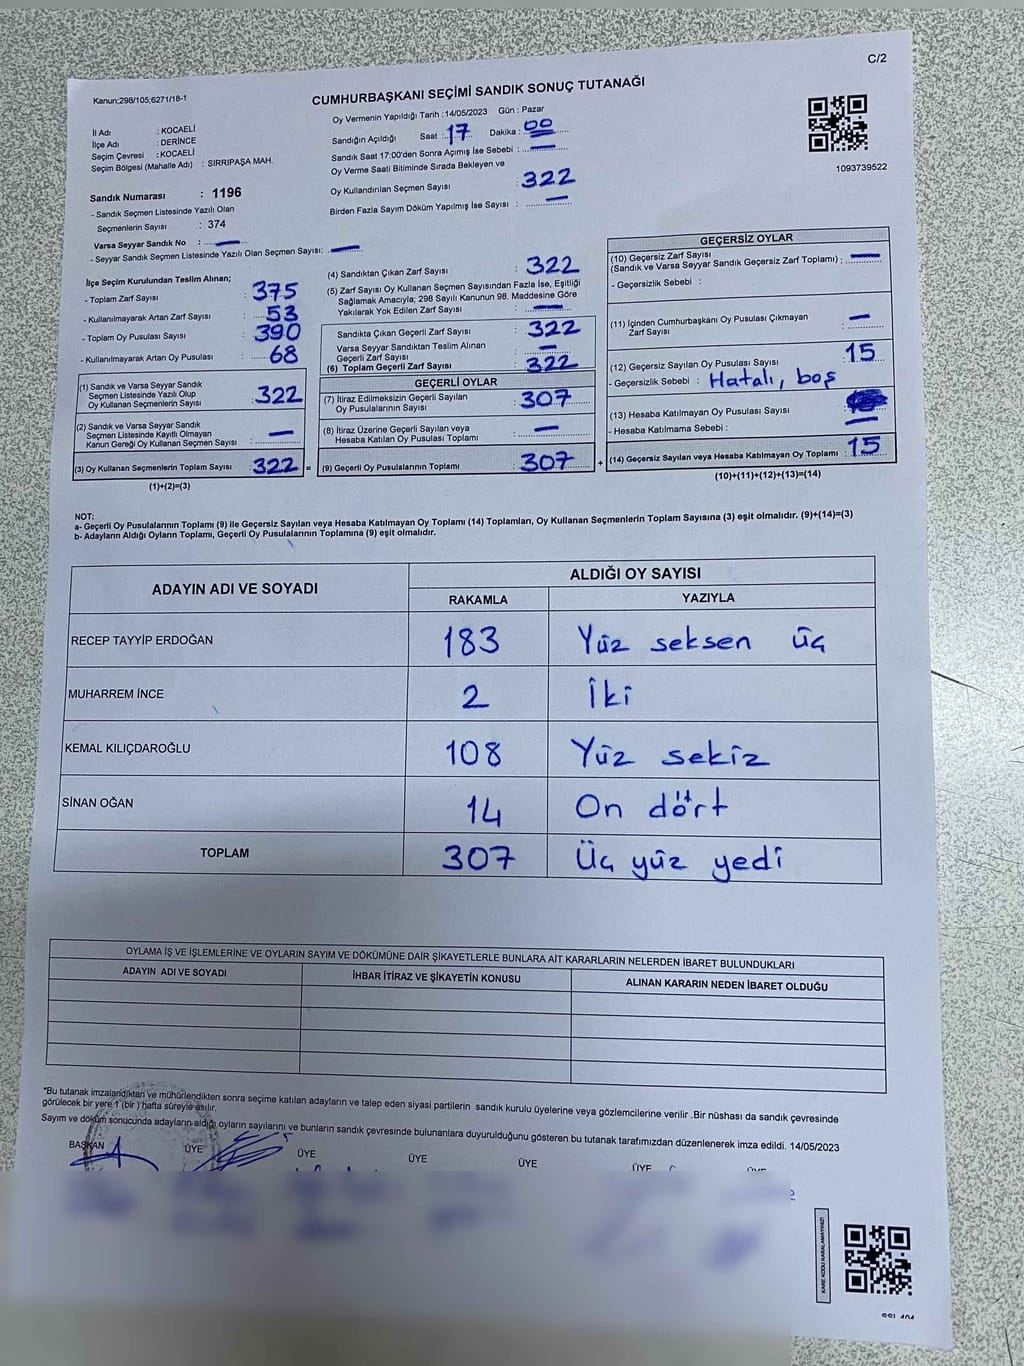 C/2
Kanun;298/105;6271/18-1
CUMHURBAŞKANI SEÇİMİ SANDIK SONUÇ TUTANAĞI
İl Adı : KOCAELİ
İlçe Adı : DERİNCE
Seçim Çevresi : KOCAELİ
Seçim Bölgesi (Mahalle Adı) : SIRRIPAŞA MAH.
Sandık Numarası : 1196
- Sandık Seçmen Listesinde Yazılı Olan
Seçmenlerin Sayısı : 374
Varsa Seyyar Sandık No : —
- Seyyar Sandık Seçmen Listesinde Yazılı Olan Seçmen Sayısı: —
Oy Vermenin Yapıldığı Tarih : 14/05/2023 Gün : Pazar
Sandığın Açıldığı Saat : 17 Dakika : 00
Sandık Saat 17:00'den Sonra Açımış İse Sebebi : —
Oy Verme Saati Bitiminde Sırada Bekleyen ve
Oy Kullandırılan Seçmen Sayısı : 322
Birden Fazla Sayım Döküm Yapılmış İse Sayısı : —
1093739522
İlçe Seçim Kurulundan Teslim Alınan;
- Toplam Zarf Sayısı : 375
- Kullanılmayarak Artan Zarf Sayısı : 53
- Toplam Oy Pusulası Sayısı : 390
- Kullanılmayarak Artan Oy Pusulası : 68
(1) Sandık ve Varsa Seyyar Sandık
Seçmen Listesinde Yazılı Olup
Oy Kullanan Seçmenlerin Sayısı : 322
(2) Sandık ve Varsa Seyyar Sandık
Seçmen Listesinde Kayıtlı Olmayan
Kanun Gereği Oy Kullanan Seçmen Sayısı : —
(3) Oy Kullanan Seçmenlerin Toplam Sayısı : 322 =
(1)+(2)=(3)
(4) Sandıktan Çıkan Zarf Sayısı : 322
(5) Zarf Sayısı Oy Kullanan Seçmen Sayısından Fazla İse, Eşitliği
Sağlamak Amacıyla; 298 Sayılı Kanunun 98. Maddesine Göre
Yakılarak Yok Edilen Zarf Sayısı : —
Sandıkta Çıkan Geçerli Zarf Sayısı : 322
Varsa Seyyar Sandıktan Teslim Alınan
Geçerli Zarf Sayısı : —
(6) Toplam Geçerli Zarf Sayısı : 322
GEÇERLİ OYLAR
(7) İtiraz Edilmeksizin Geçerli Sayılan
Oy Pusulalarının Sayısı : 307
(8) İtiraz Üzerine Geçerli Sayılan veya
Hesaba Katılan Oy Pusulası Toplamı : —
(9) Geçerli Oy Pusulalarının Toplamı : 307 +
GEÇERSİZ OYLAR
(10) Geçersiz Zarf Sayısı
(Sandık ve Varsa Seyyar Sandık Geçersiz Zarf Toplamı) : —
- Geçersizlik Sebebi :
(11) İçinden Cumhurbaşkanı Oy Pusulası Çıkmayan
Zarf Sayısı : —
(12) Geçersiz Sayılan Oy Pusulası Sayısı : 15
- Geçersizlik Sebebi : Hatalı, boş
(13) Hesaba Katılmayan Oy Pusulası Sayısı : —
- Hesaba Katılmama Sebebi :
(14) Geçersiz Sayılan veya Hesaba Katılmayan Oy Toplamı : 15
(10)+(11)+(12)+(13)=(14)
NOT:
a- Geçerli Oy Pusulalarının Toplamı (9) ile Geçersiz Sayılan veya Hesaba Katılmayan Oy Toplamı (14) Toplamları, Oy Kullanan Seçmenlerin Toplam Sayısına (3) eşit olmalıdır. (9)+(14)=(3)
b- Adayların Aldığı Oyların Toplamı, Geçerli Oy Pusulalarının Toplamına (9) eşit olmalıdır.
ADAYIN ADI VE SOYADI ALDIĞI OY SAYISI
RAKAMLA YAZIYLA
RECEP TAYYİP ERDOĞAN 183 Yüz seksen üç
MUHARREM İNCE 2 İki
KEMAL KILIÇDAROĞLU 108 Yüz sekiz
SİNAN OĞAN 14 On dört
TOPLAM 307 Üç yüz yedi
OYLAMA İŞ VE İŞLEMLERİNE VE OYLARIN SAYIM VE DÖKÜMÜNE DAİR ŞİKAYETLERLE BUNLARA AİT KARARLARIN NELERDEN İBARET BULUNDUKLARI
ADAYIN ADI VE SOYADI İHBAR İTİRAZ VE ŞİKAYETİN KONUSU ALINAN KARARIN NEDEN İBARET OLDUĞU
*Bu tutanak imzalandıktan ve mühürlendikten sonra seçime katılan adayların ve talep eden siyasi partilerin sandık kurulu üyelerine veya gözlemcilerine verilir .Bir nüshası da sandık çevresinde
görülecek bir yere 1 (bir ) hafta süreyle asılır.
Sayım ve döküm sonucunda adayların aldığı oyların sayılarını ve bunların sandık çevresinde bulunanlara duyurulduğunu gösteren bu tutanak tarafımızdan düzenlenerek imza edildi. 14/05/2023
BAŞKAN ÜYE ÜYE ÜYE ÜYE ÜYE ÜYE
KARE KODU KARALAMAYINIZ!